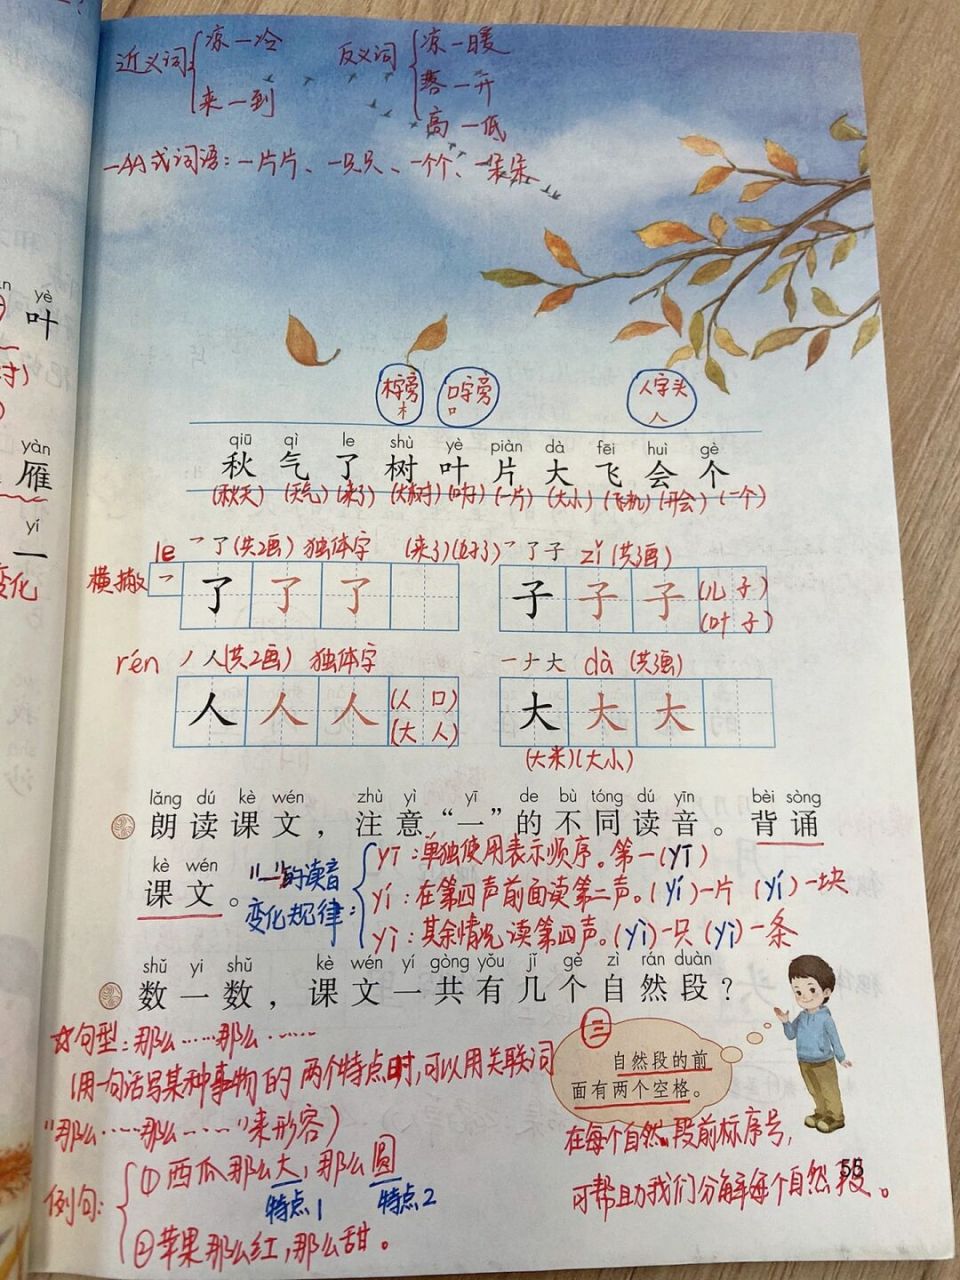 近义词 凉—冷 反义词 凉—暖
来—到 落—开
高—低
一AA式词语：一片片、一只只、一个个、一朵朵
木字旁 口字旁 人字头
木 口 人
qiū qì le shù yè piàn dà fēi huì gè
秋 气 了 树 叶 片 大 飞 会 个
(秋天) (天气) (来了) (大树) (叶子) (一片) (大小) (飞机) (开会) (一个)
le 乛了(共2画) 独体字 (来了)(好了) 乛了子 zǐ (共3画)
横撇 乛 了 了 了 子 子 子 (儿子)
(叶子)
rén 丿人(共2画) 独体字 一ナ大 dà (共3画)
人 人 人 (人口) 大 大 大
(大人)
(大米)(大小)
lǎng dú kè wén zhù yì yī de bù tóng dú yīn bèi sòng
朗读课文，注意“一”的不同读音。背诵
kè wén
课文。
"一"的读音
变化规律：
yī：单独使用表示顺序。第一(yī)
yí：在第四声前面读第二声。(yí)一片 (yí)一块
yì：其余情况读第四声。(yì)一只 (yì)一条
shǔ yi shǔ kè wén yí gòng yǒu jǐ gè zì rán duàn
数一数，课文一共有几个自然段？
☆句型：那么……那么……
(用一句话写某种事物的两个特点时,可以用关联词
"那么……那么……"来形容)
例句：
①西瓜那么大，那么圆
特点1 特点2
②苹果那么红，那么甜。
三
自然段的前
面有两个空格。
在每个自然段前标序号，
可帮助我们分解每个自然段。
55
yè
叶
yàn
雁
yí
一
变化